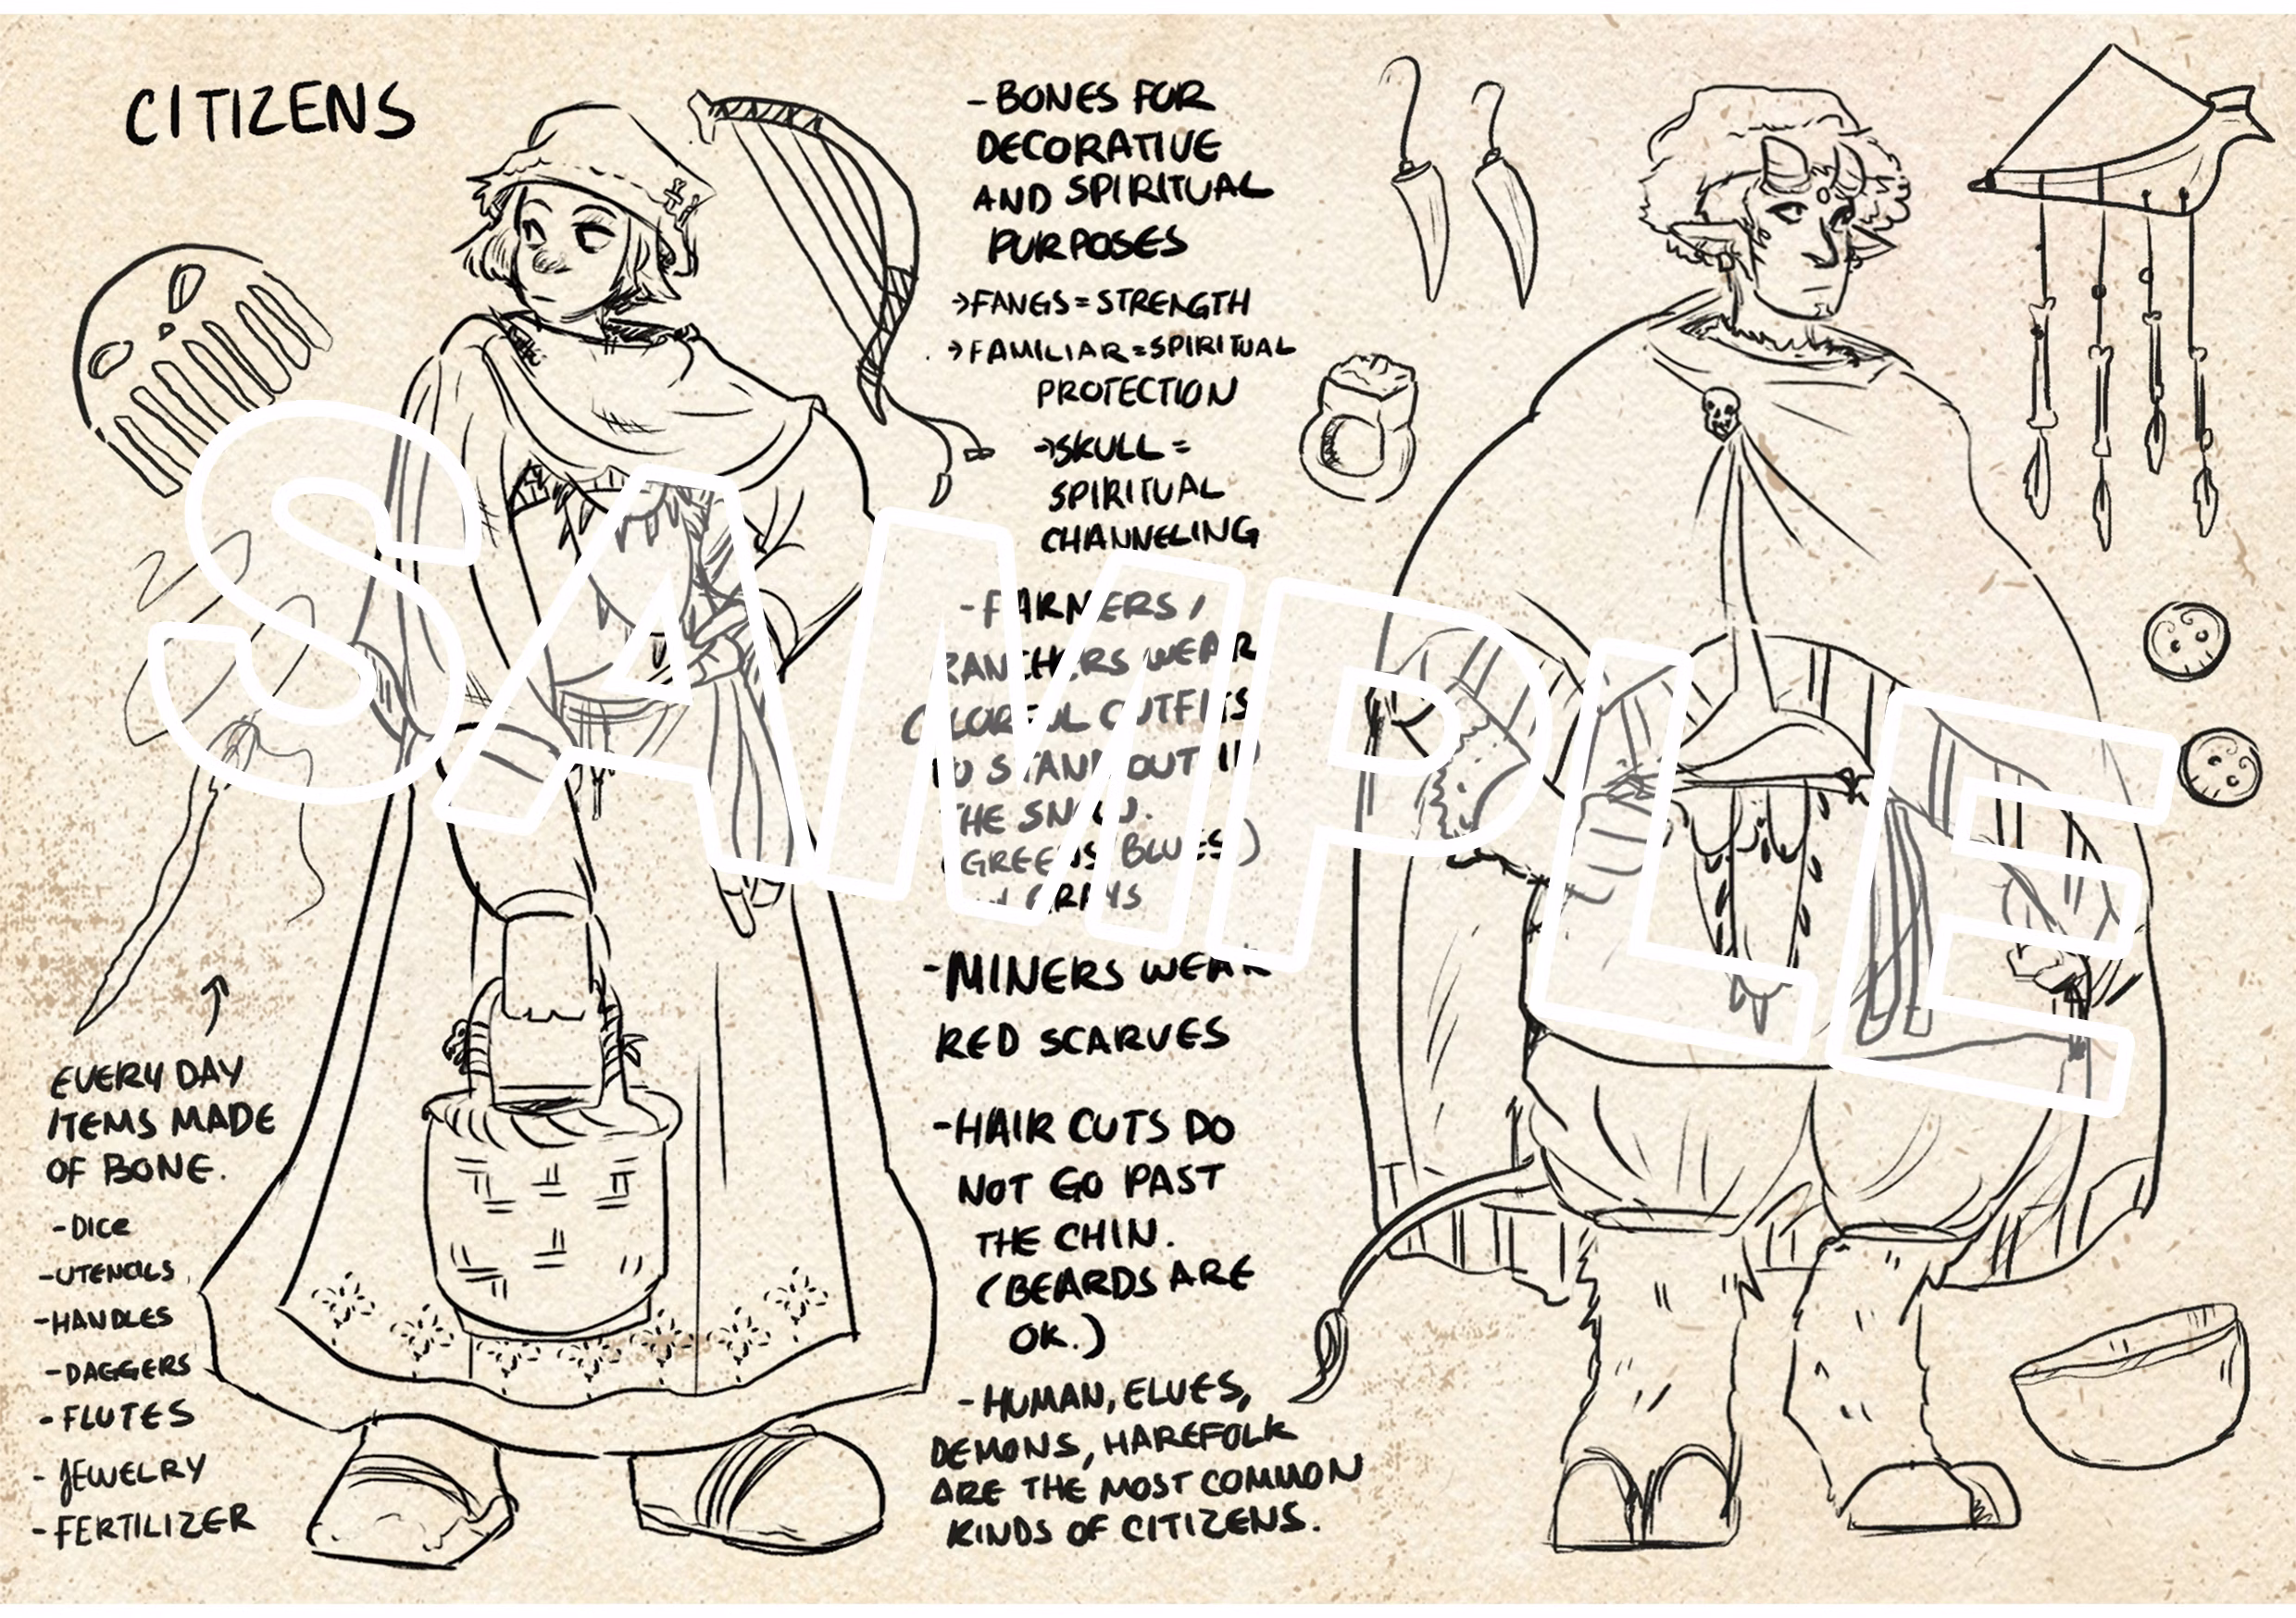 CITIZENS
-BONES FOR
DECORATIVE
AND SPIRITUAL
PURPOSES
→FANGS=STRENGTH
→FAMILIAR=SPIRITUAL
PROTECTION
→SKULL=
SPIRITUAL
CHANNELING
-FARMERS/
RANCHERS WEAR
COLORFUL OUTFITS
TO STAND OUT IN
THE SNOW.
(GREENS, BLUES)
GRAYS
-MINERS WEAR
RED SCARVES
-HAIR CUTS DO
NOT GO PAST
THE CHIN.
(BEARDS ARE
OK.)
-HUMAN, ELVES,
DEMONS, HAREFOLK
ARE THE MOST COMMON
KINDS OF CITIZENS.
EVERY DAY
ITEMS MADE
OF BONE.
-DICE
-UTENCILS
-HANDLES
-DAGGERS
-FLUTES
-JEWELRY
-FERTILIZER
SAMPLE